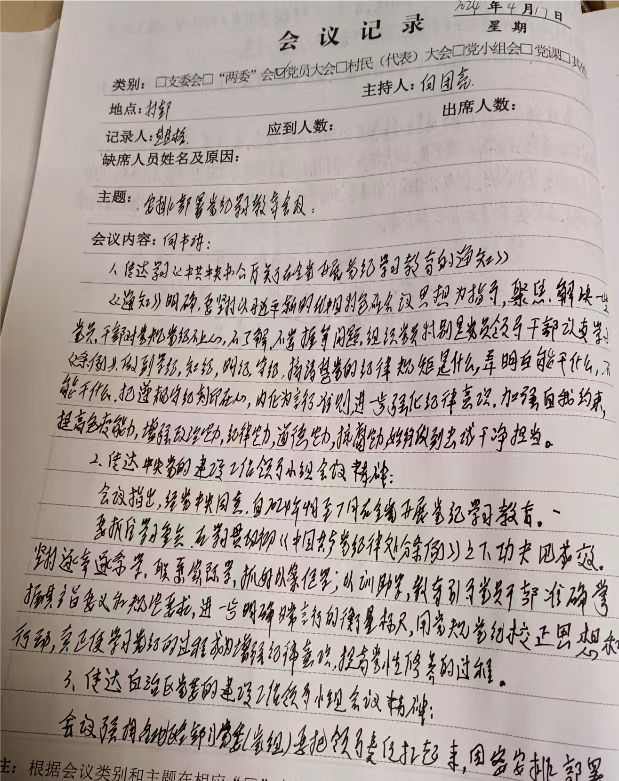 2024年4月17日
会议记录
星期
类别：□支委会□“两委”会☑党员大会□村民（代表）大会□党小组会□党课□其他
地点：村部 主持人：
记录人： 应到人数： 出席人数：
缺席人员姓名及原因：
主题：安排部署党纪学习教育会议：
会议内容：
1、传达学习《中共中央办公厅关于在全党开展党纪学习教育的通知》
《通知》明确，要坚持以习近平新时代中国特色 思想为指导，聚焦解决一些
党员、干部对党规党纪不上心、不了解、不掌握等问题，组织党员特别是党员领导干部认真学习
《条例》，做到学纪、知纪、明纪、守纪，搞清楚党的纪律规矩是什么，弄明白能干什么，不
能干什么，把遵规守纪刻印在心，内化为言行准则，进一步强化纪律意识，加强自我约束，
提高免疫能力，增强政治定力，纪律定力，道德定力，抵腐定力，始终做到忠诚干净担当。
2、传达中央党的建设工作领导小组会议精神：
会议指出，经党中央同意，自2024年4月至7月在全党开展党纪学习教育。一
要抓住学习重点，在学习贯彻《中国共产党纪律处分条例》上下功夫见成效。
坚持逐章逐条学，联系实际学，抓好以案促学；以训助学，教育引导党员干部准确掌
握其主旨要义和规定要求，进一步明确日常言行的衡量标尺，用党规党纪校正思想和
行动，真正使学习党纪的过程成为增强纪律意识，提高党性修养的过程。
3、传达自治区党委党的建设工作领导小组会议精神：
会议强调，各地各部门党委（党组）要把领导责任扛起来，周密安排部署
注：根据会议类别和主题在相应“□”